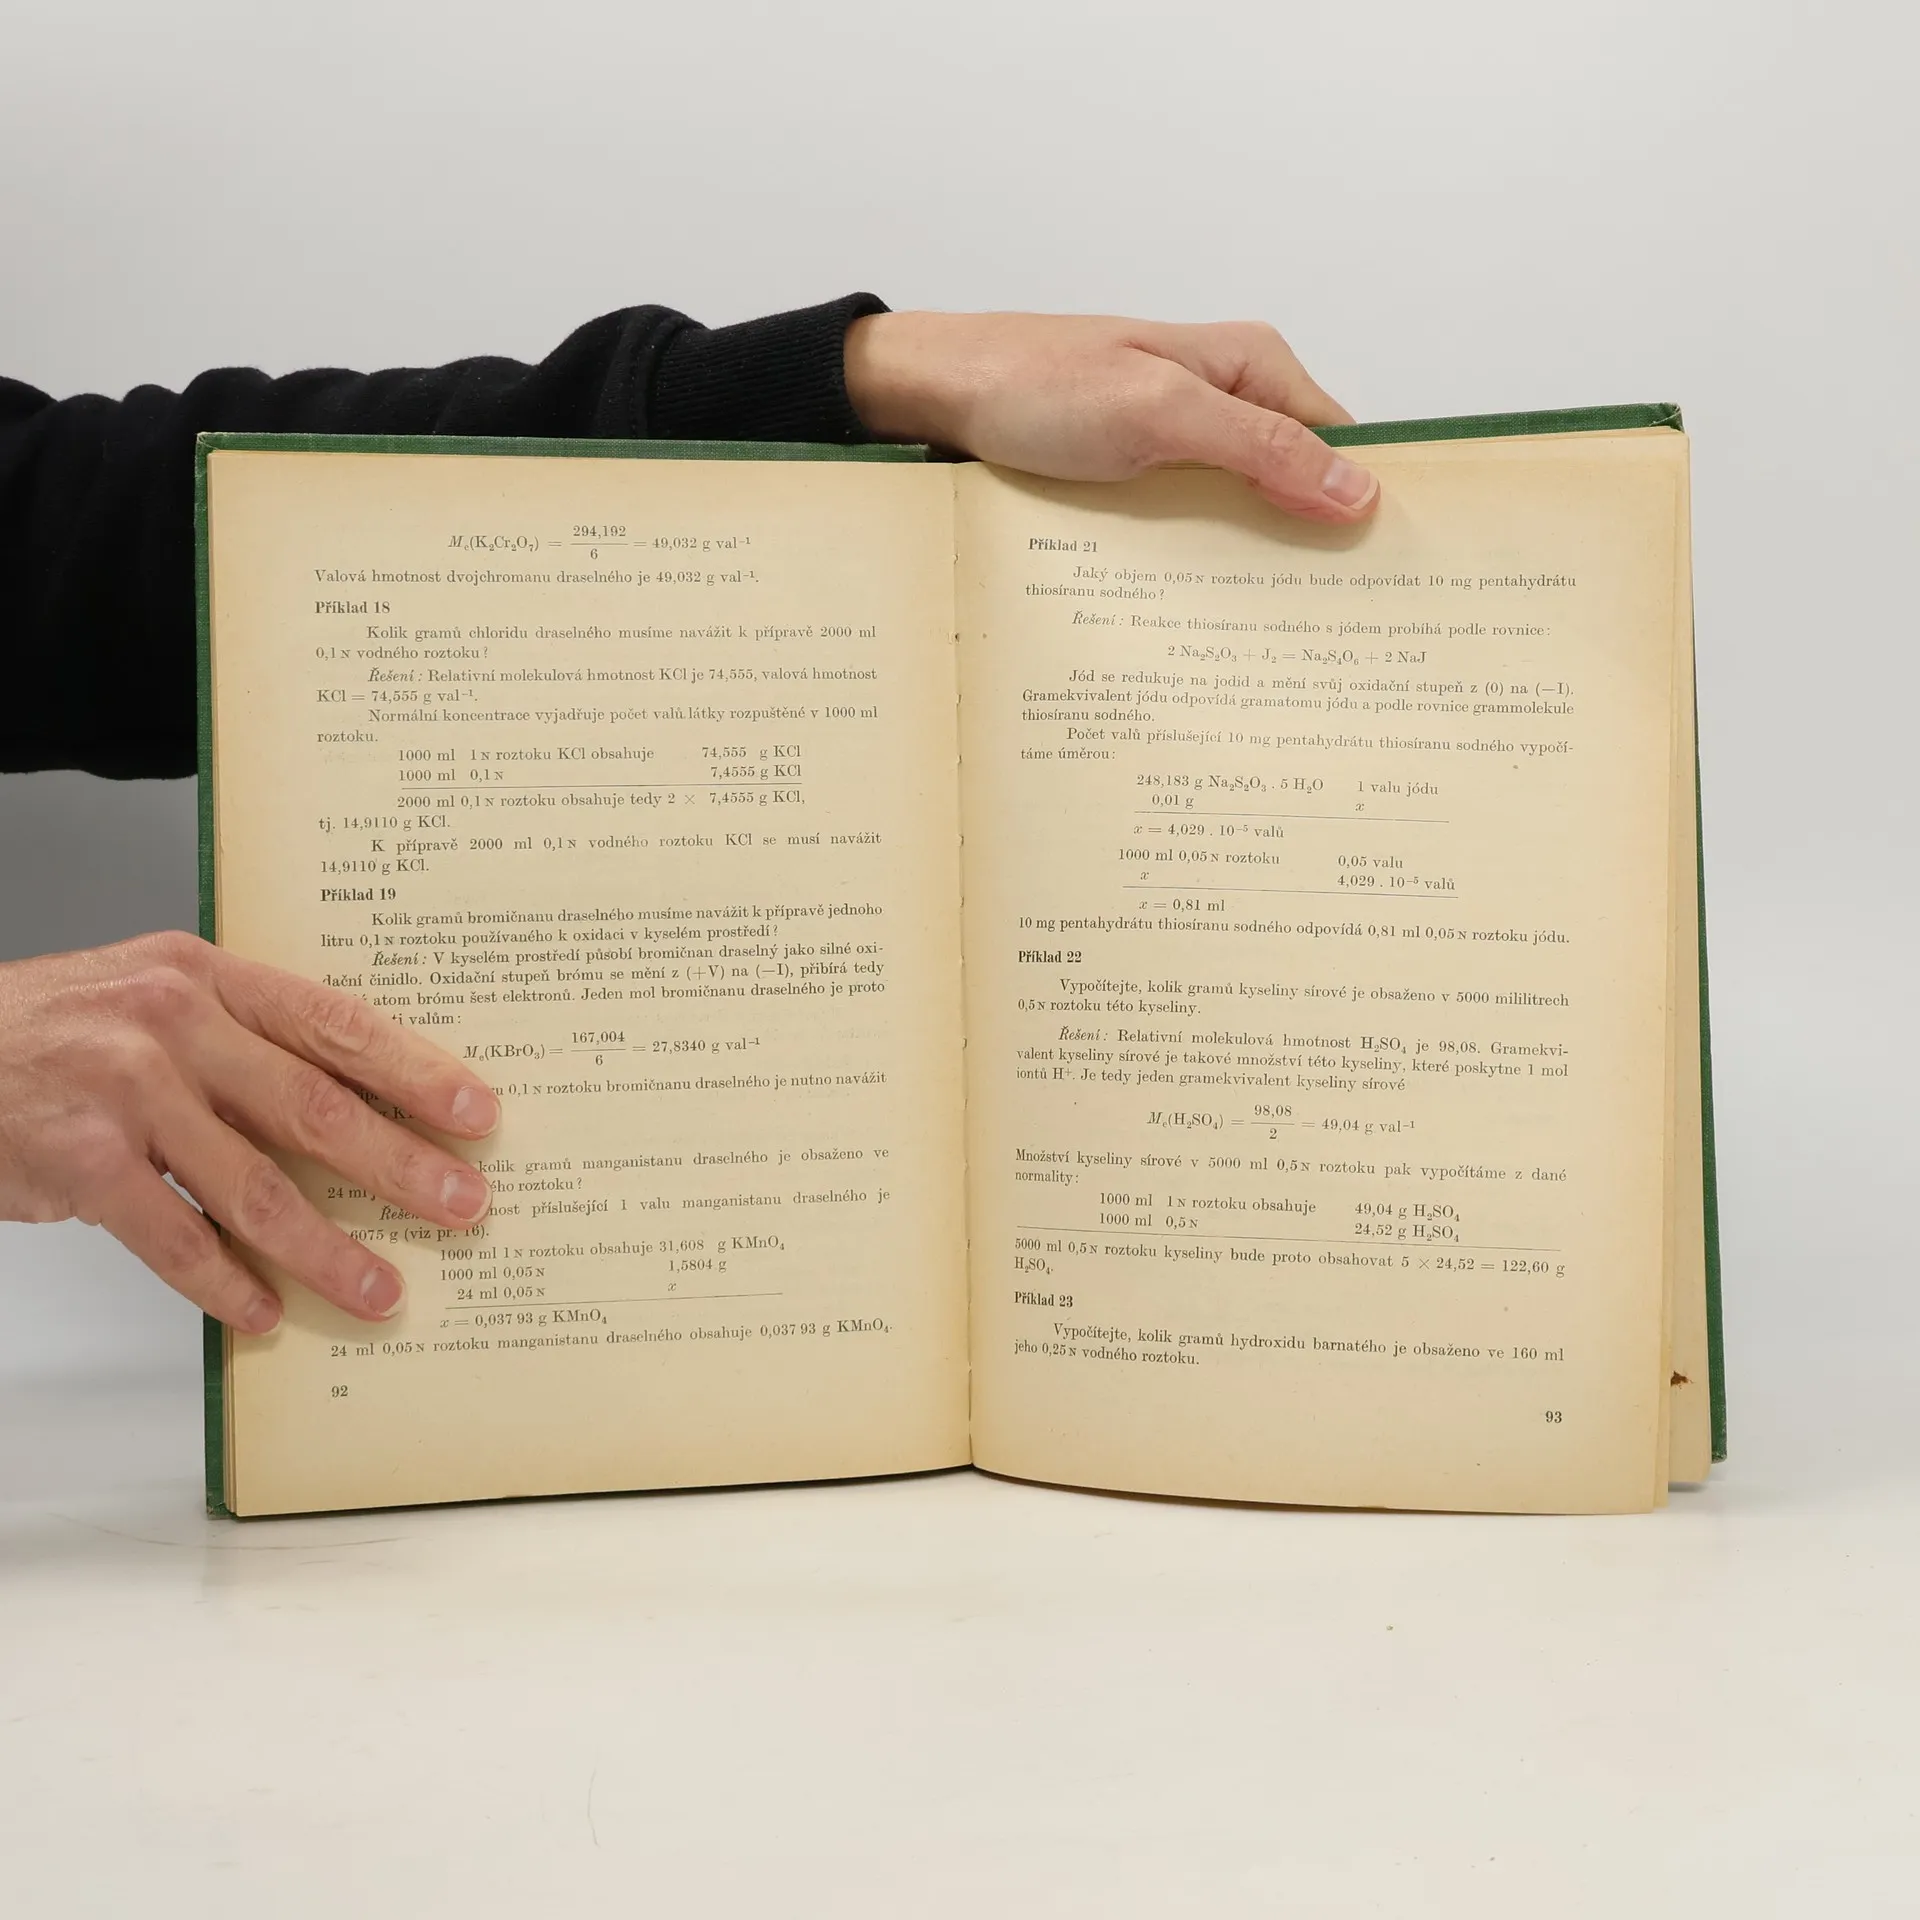 Mₑ(K₂Cr₂O₇) = 294,192 / 6 = 49,032 g val⁻¹
Valová hmotnost dvojchromanu draselného je 49,032 g val⁻¹.
Příklad 18
Kolik gramů chloridu draselného musíme navážit k přípravě 2000 ml
0,1 N vodného roztoku?
Řešení: Relativní molekulová hmotnost KCl je 74,555, valová hmotnost
KCl = 74,555 g val⁻¹.
Normální koncentrace vyjadřuje počet valů látky rozpuštěné v 1000 ml
roztoku.
1000 ml 1 N roztoku KCl obsahuje 74,555 g KCl
1000 ml 0,1 N 7,4555 g KCl
2000 ml 0,1 N roztoku obsahuje tedy 2 × 7,4555 g KCl,
tj. 14,9110 g KCl.
K přípravě 2000 ml 0,1 N vodného roztoku KCl se musí navážit
14,9110 g KCl.
Příklad 19
Kolik gramů bromičnanu draselného musíme navážit k přípravě jednoho
litru 0,1 N roztoku používaného k oxidaci v kyselém prostředí?
Řešení: V kyselém prostředí působí bromičnan draselný jako silné oxi-
dační činidlo. Oxidační stupeň brómu se mění z (+V) na (—I), přibírá tedy
atom brómu šest elektronů. Jeden mol bromičnanu draselného je proto
valům:
Mₑ(KBrO₃) = 167,004 / 6 = 27,8340 g val⁻¹
0,1 N roztoku bromičnanu draselného je nutno navážit
kolik gramů manganistanu draselného je obsaženo ve
24 ml roztoku?
příslušející 1 valu manganistanu draselného je
6075 g (viz pr. 16).
1000 ml 1 N roztoku obsahuje 31,608 g KMnO₄
1000 ml 0,05 N 1,5804 g
24 ml 0,05 N x
x = 0,037 93 g KMnO₄
24 ml 0,05 N roztoku manganistanu draselného obsahuje 0,037 93 g KMnO₄.
92
Příklad 21
Jaký objem 0,05 N roztoku jódu bude odpovídat 10 mg pentahydrátu
thiosíranu sodného?
Řešení: Reakce thiosíranu sodného s jódem probíhá podle rovnice:
2 Na₂S₂O₃ + J₂ = Na₂S₄O₆ + 2 NaJ
Jód se redukuje na jodid a mění svůj oxidační stupeň z (0) na (—I).
Gramekvivalent jódu odpovídá gramatomu jódu a podle rovnice grammolekule
thiosíranu sodného.
Počet valů příslušející 10 mg pentahydrátu thiosíranu sodného vypočí-
táme úměrou:
248,183 g Na₂S₂O₃ . 5 H₂O 1 valu jódu
0,01 g x
x = 4,029 . 10⁻⁵ valů
1000 ml 0,05 N roztoku 0,05 valu
x 4,029 . 10⁻⁵ valů
x = 0,81 ml
10 mg pentahydrátu thiosíranu sodného odpovídá 0,81 ml 0,05 N roztoku jódu.
Příklad 22
Vypočítejte, kolik gramů kyseliny sírové je obsaženo v 5000 mililitrech
0,5 N roztoku této kyseliny.
Řešení: Relativní molekulová hmotnost H₂SO₄ je 98,08. Gramekvi-
valent kyseliny sírové je takové množství této kyseliny, které poskytne 1 mol
iontů H⁺. Je tedy jeden gramekvivalent kyseliny sírové
Mₑ(H₂SO₄) = 98,08 / 2 = 49,04 g val⁻¹
Množství kyseliny sírové v 5000 ml 0,5 N roztoku pak vypočítáme z dané
normality:
1000 ml 1 N roztoku obsahuje 49,04 g H₂SO₄
1000 ml 0,5 N 24,52 g H₂SO₄
5000 ml 0,5 N roztoku kyseliny bude proto obsahovat 5 × 24,52 = 122,60 g
H₂SO₄.
Příklad 23
Vypočítejte, kolik gramů hydroxidu barnatého je obsaženo ve 160 ml
jeho 0,25 N vodného roztoku.
93